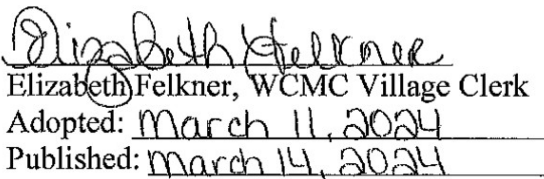 Elizabeth Felkner
Elizabeth Felkner, WCMC Village Clerk
Adopted: March 11, 2024
Published: March 14, 2024